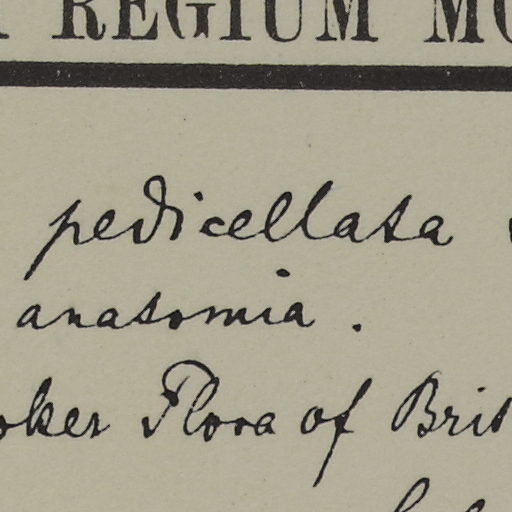 REGIUM MO
pedicellata
anatomia.
oker Flora of Brit